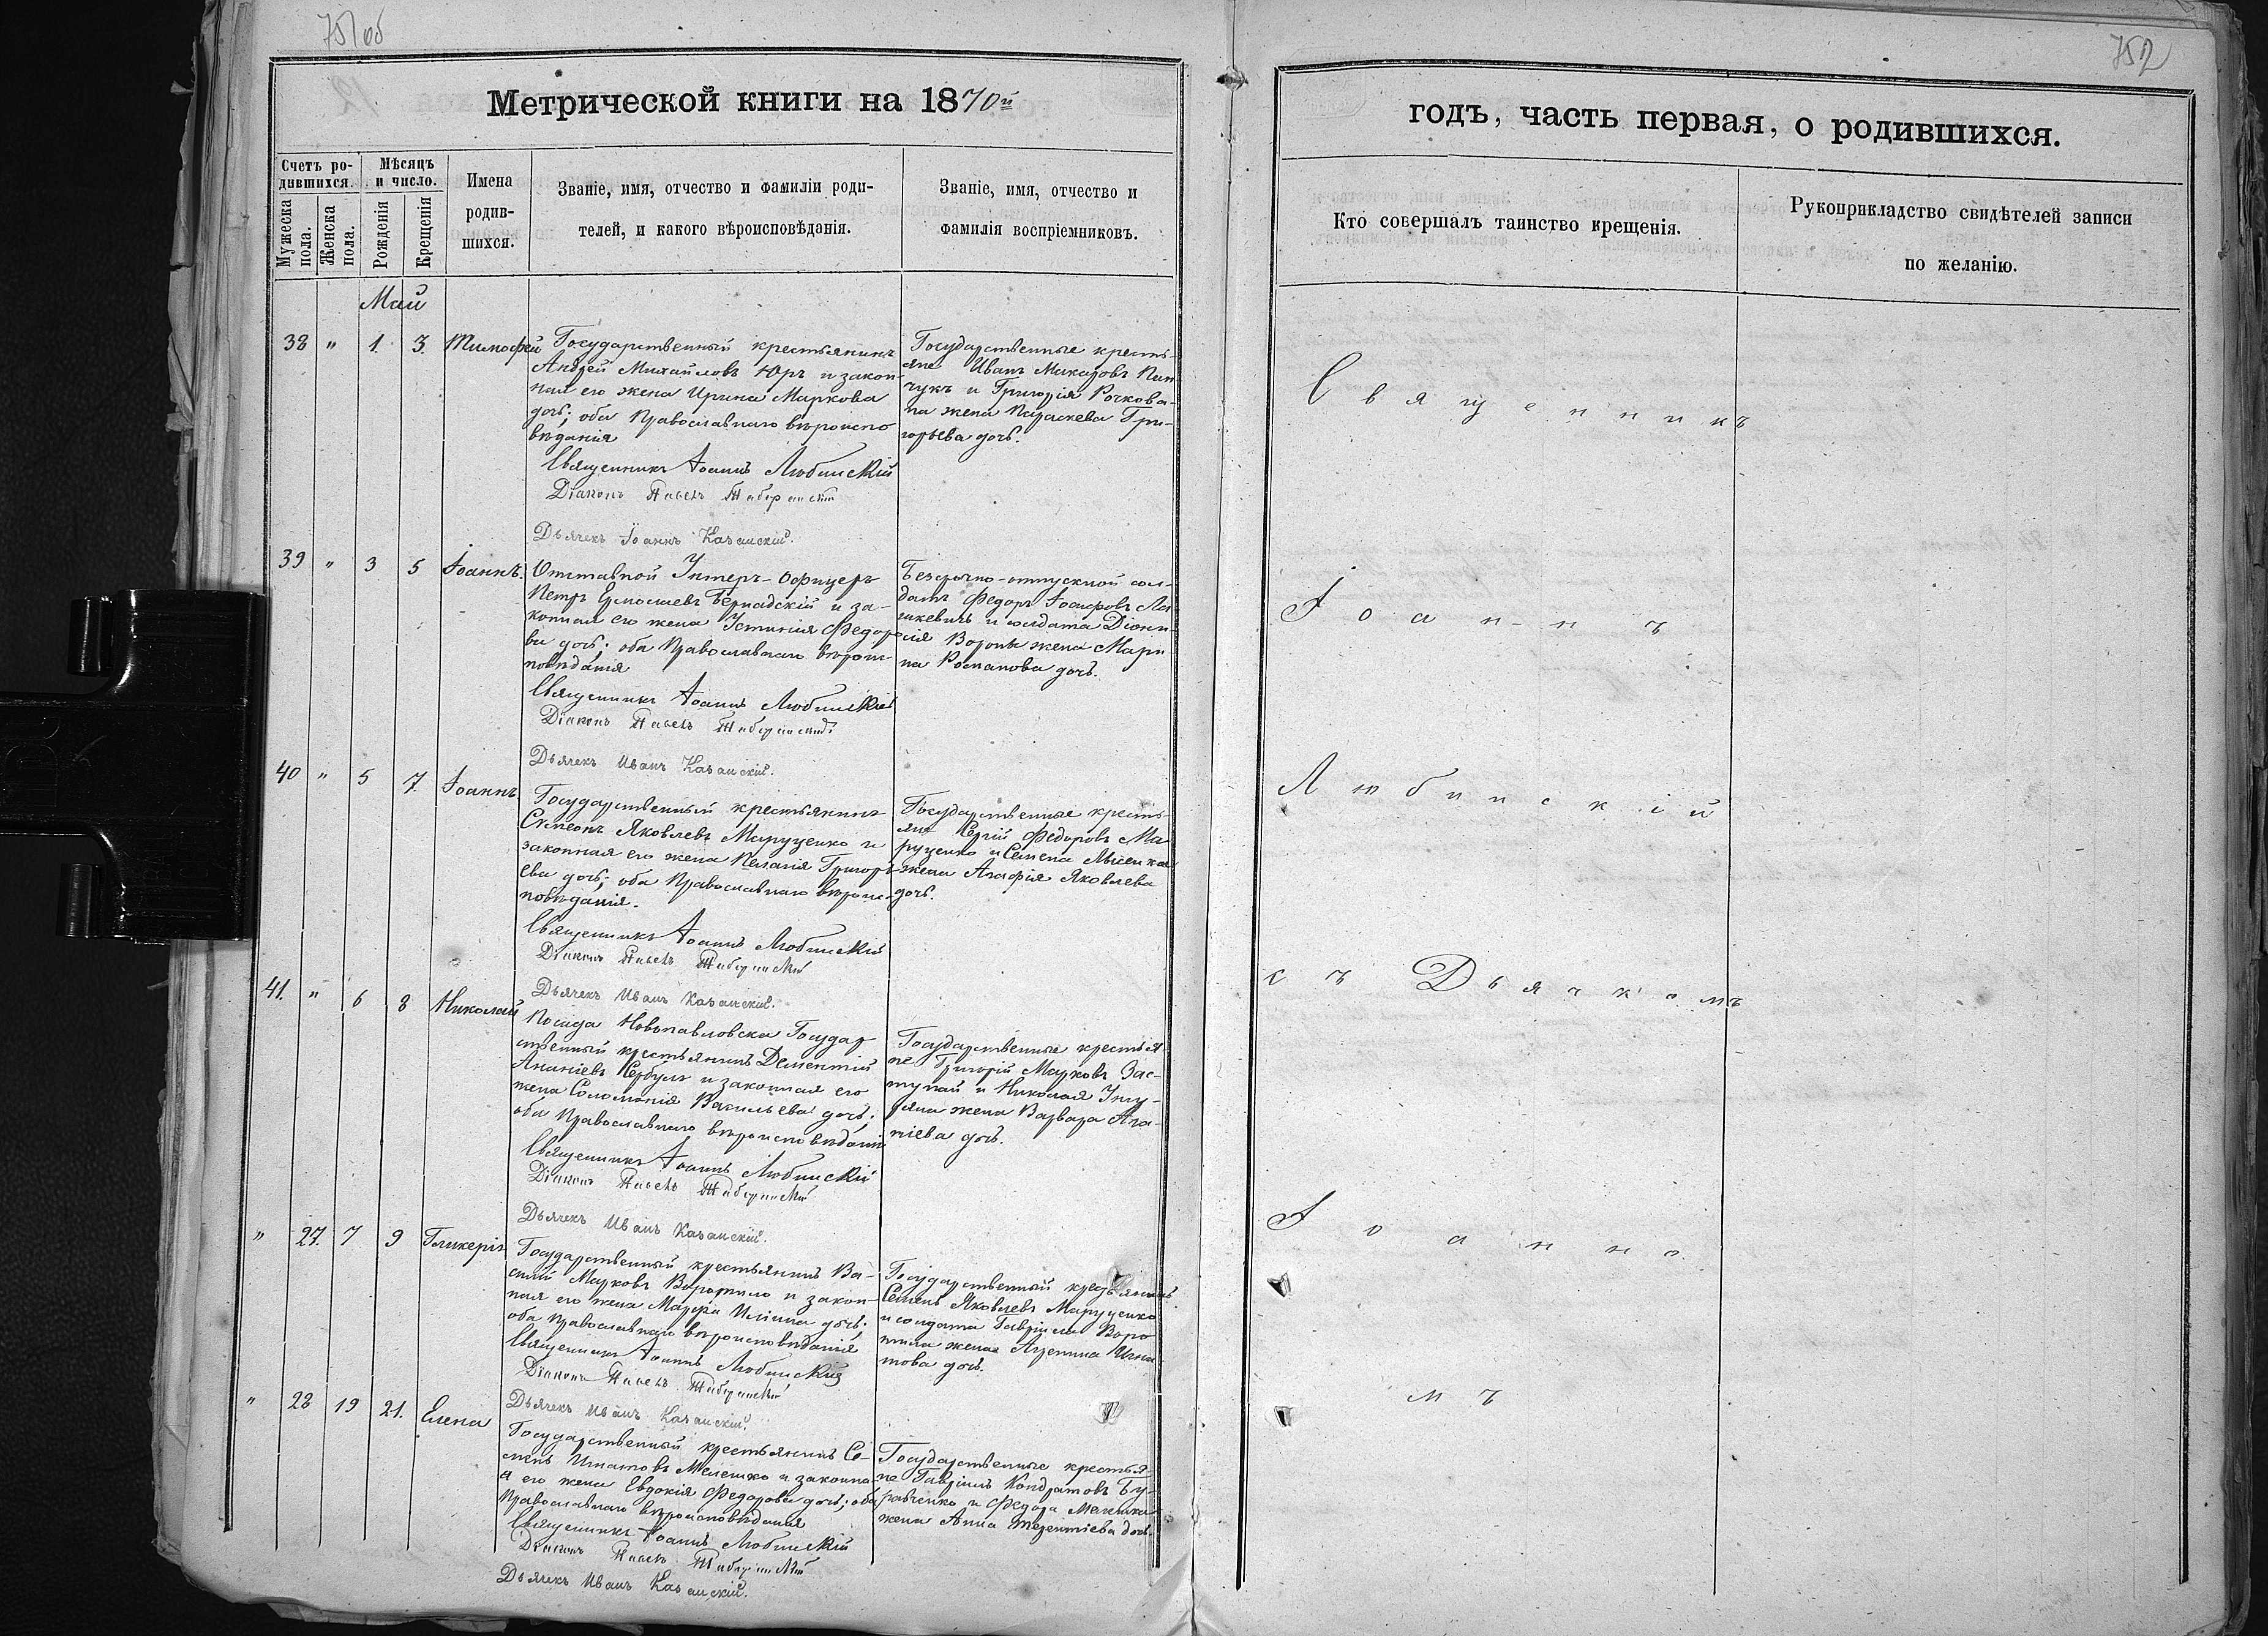 752
Метрической книги на 1870й
годъ, часть первая, о родившихся.
Счетъ ро-
дившихся.
Мѣсяцъ
и число.
Мужеска
пола.
Женска
пола.
Рожденія
Крещенія
Имена
родив-
шихся.
Званіе, имя, отчество и фамиліи роди-
телей, и какого вѣроисповѣданія.
Званіе, имя, отчество и
фамилія воспріемниковъ.
Кто совершалъ таинство крещенія.
Рукоприкладство свидѣтелей записи
по желанію.
Май
38 " 1. 3. Тимофей
Государственный крестьянинъ
Андрей Михайловъ Юръ и закон-
ная его жена Ирина Маркова
дочь; оба Православнаго вѣроиспо
вѣданія
Священникъ Іоаннъ Любинскій
Діаконъ Павелъ
Дьячекъ Іоаннъ Казанскій.
Государственные кресть-
яне Иванъ Макаровъ Пин
чукъ и Григорія Рочкова-
на жена Параскева Гри-
горьева дочь.
39 " 3 5 Іоаннъ.
Отставной Унтеръ-Офицеръ
Петръ Ермолаевъ Бернадскій и за-
конная его жена Устинія Федоро
ва дочь; оба Православнаго вѣроис-
повѣданія
Священникъ Іоаннъ Любинскій
Діаконъ Павелъ
Дьячекъ Иванъ Казанскій.
Безсрочно-отпускной сол-
датъ Федоръ Іосифовъ
и солдата Діони-
сія жена Мари
на Романова дочь.
40 " 5 7. Іоаннъ
Государственный крестьянинъ
Симеонъ Яковлевъ Маруценко и
законная его жена Пелагія Григорь
ева дочь; оба Православнаго вѣроис-
повѣданія.
Священникъ Іоаннъ Любинскій
Діаконъ Павелъ
Дьячекъ Иванъ Казанскій.
Государственные кресть-
яне Сергій Федоровъ Ма
руценко и Семена
жена Агафія Яковлева
дочь.
41. " 6 8 Николай
Посада Новопавловска Государ
ственный крестьянинъ Дементій
Ананіевъ Сербулъ и законная его
жена Соломонія Васильева дочь;
оба Православнаго вѣроисповѣданія
Священникъ Іоаннъ Любинскій
Діаконъ Павелъ
Дьячекъ Иванъ Казанскій.
Государственные крестья-
не Григорій Марковъ Зас-
тупай и Николая Унгу-
ряна жена Варвара Ана-
ніева дочь.
" 27. 7 9 Гликерія
Государственный крестьянинъ Ва-
силій Марковъ Воропило и закон-
ная его жена Марфа Илiина дочь;
оба Православнаго вѣроисповѣданія
Священникъ Іоаннъ Любинскій
Діаконъ Павелъ
Дьячекъ Иванъ Казанскій.
Государственный крестьянинъ
Семенъ Яковлевъ Маруценко
и солдата Гавріила Воро
пила жена Агрепина Игна-
това дочь.
" 28 19 21. Елена
Государственный крестьянинъ Се-
менъ Игнатовъ Мелешко и законна-
я его жена Евдокія Федорова дочь; оба
Православнаго вѣроисповѣданія
Священникъ Іоаннъ Любинскій
Діаконъ Павелъ
Дьячекъ Иванъ Казанскій.
Государственные крестья-
не Гавріилъ Кондратовъ Бу-
равченко и Федора Мелешка
жена Анна Терентіева дочь.
Священникъ
Іоаннъ
Любинскій
съ Дьячкомъ
Іоанно
мъ